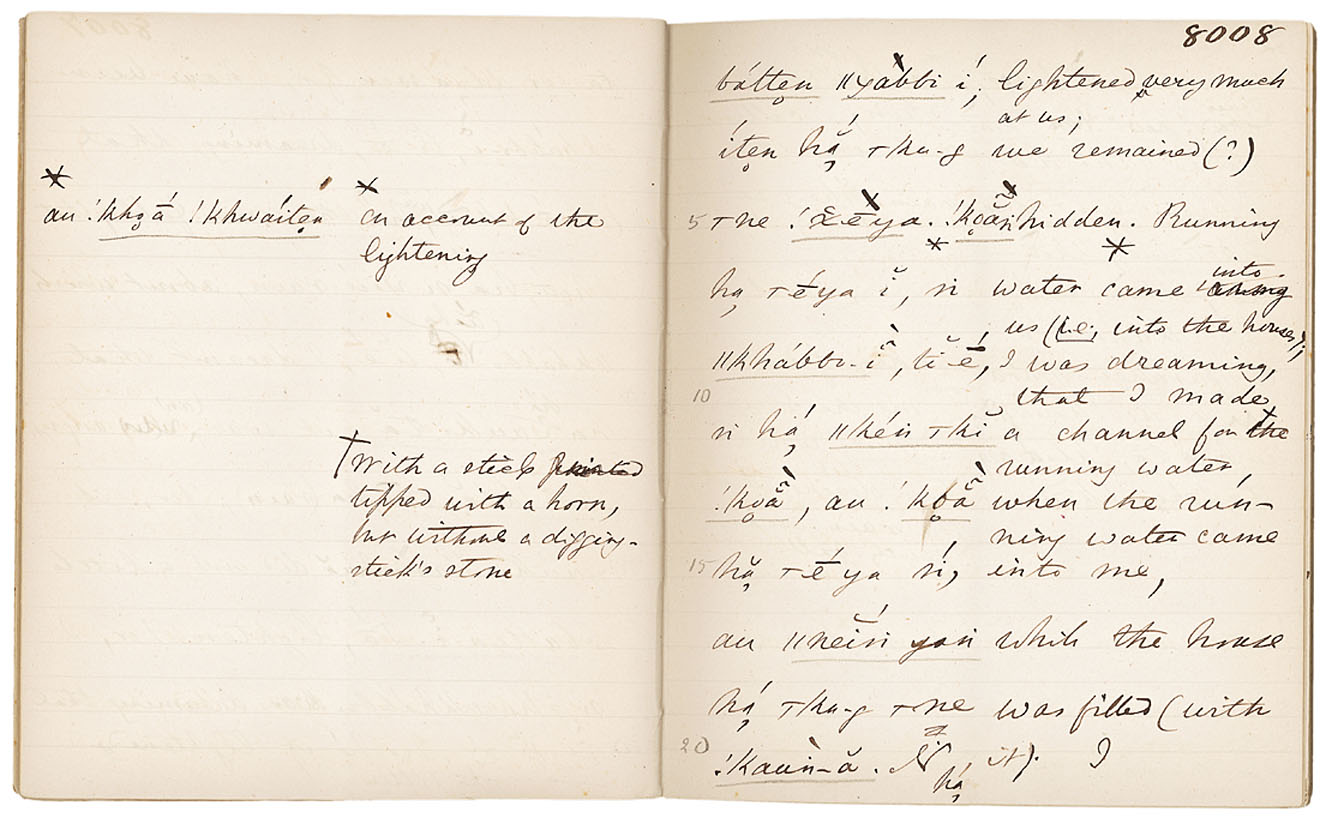 au !khọā́ !khwáitẹn
on account of the
lightening
With a stick pointed
tipped with a horn,
but without a digging-
stick's stone
8008
bátten ǁχábbi í, lightened very much
at us;
íten hạ́ ⊤ku-g we remained (?)
5 ⊤ne !χḗya. !kọãṅ hidden. Running
hạ ⊤ḗya ĭ, ṅ water came into among
us (i.e., into the houses);
ǁkhábbo-ĭ, tĭ ḗ, I was dreaming,
10 that I made
ṅ hạ́ ǁkéṅ ⊤kĭ a channel for the
running water,
!kọã, au !kọã when the run-
ning water came
15 hặ ⊤ḗya ṅ, into me,
au ǁneiṅ yaṅ while the house
hạ́ ⊤ku-g ⊤ne was filled (with
20 !kauṅ-ă. Ṅ it). I
hạ́